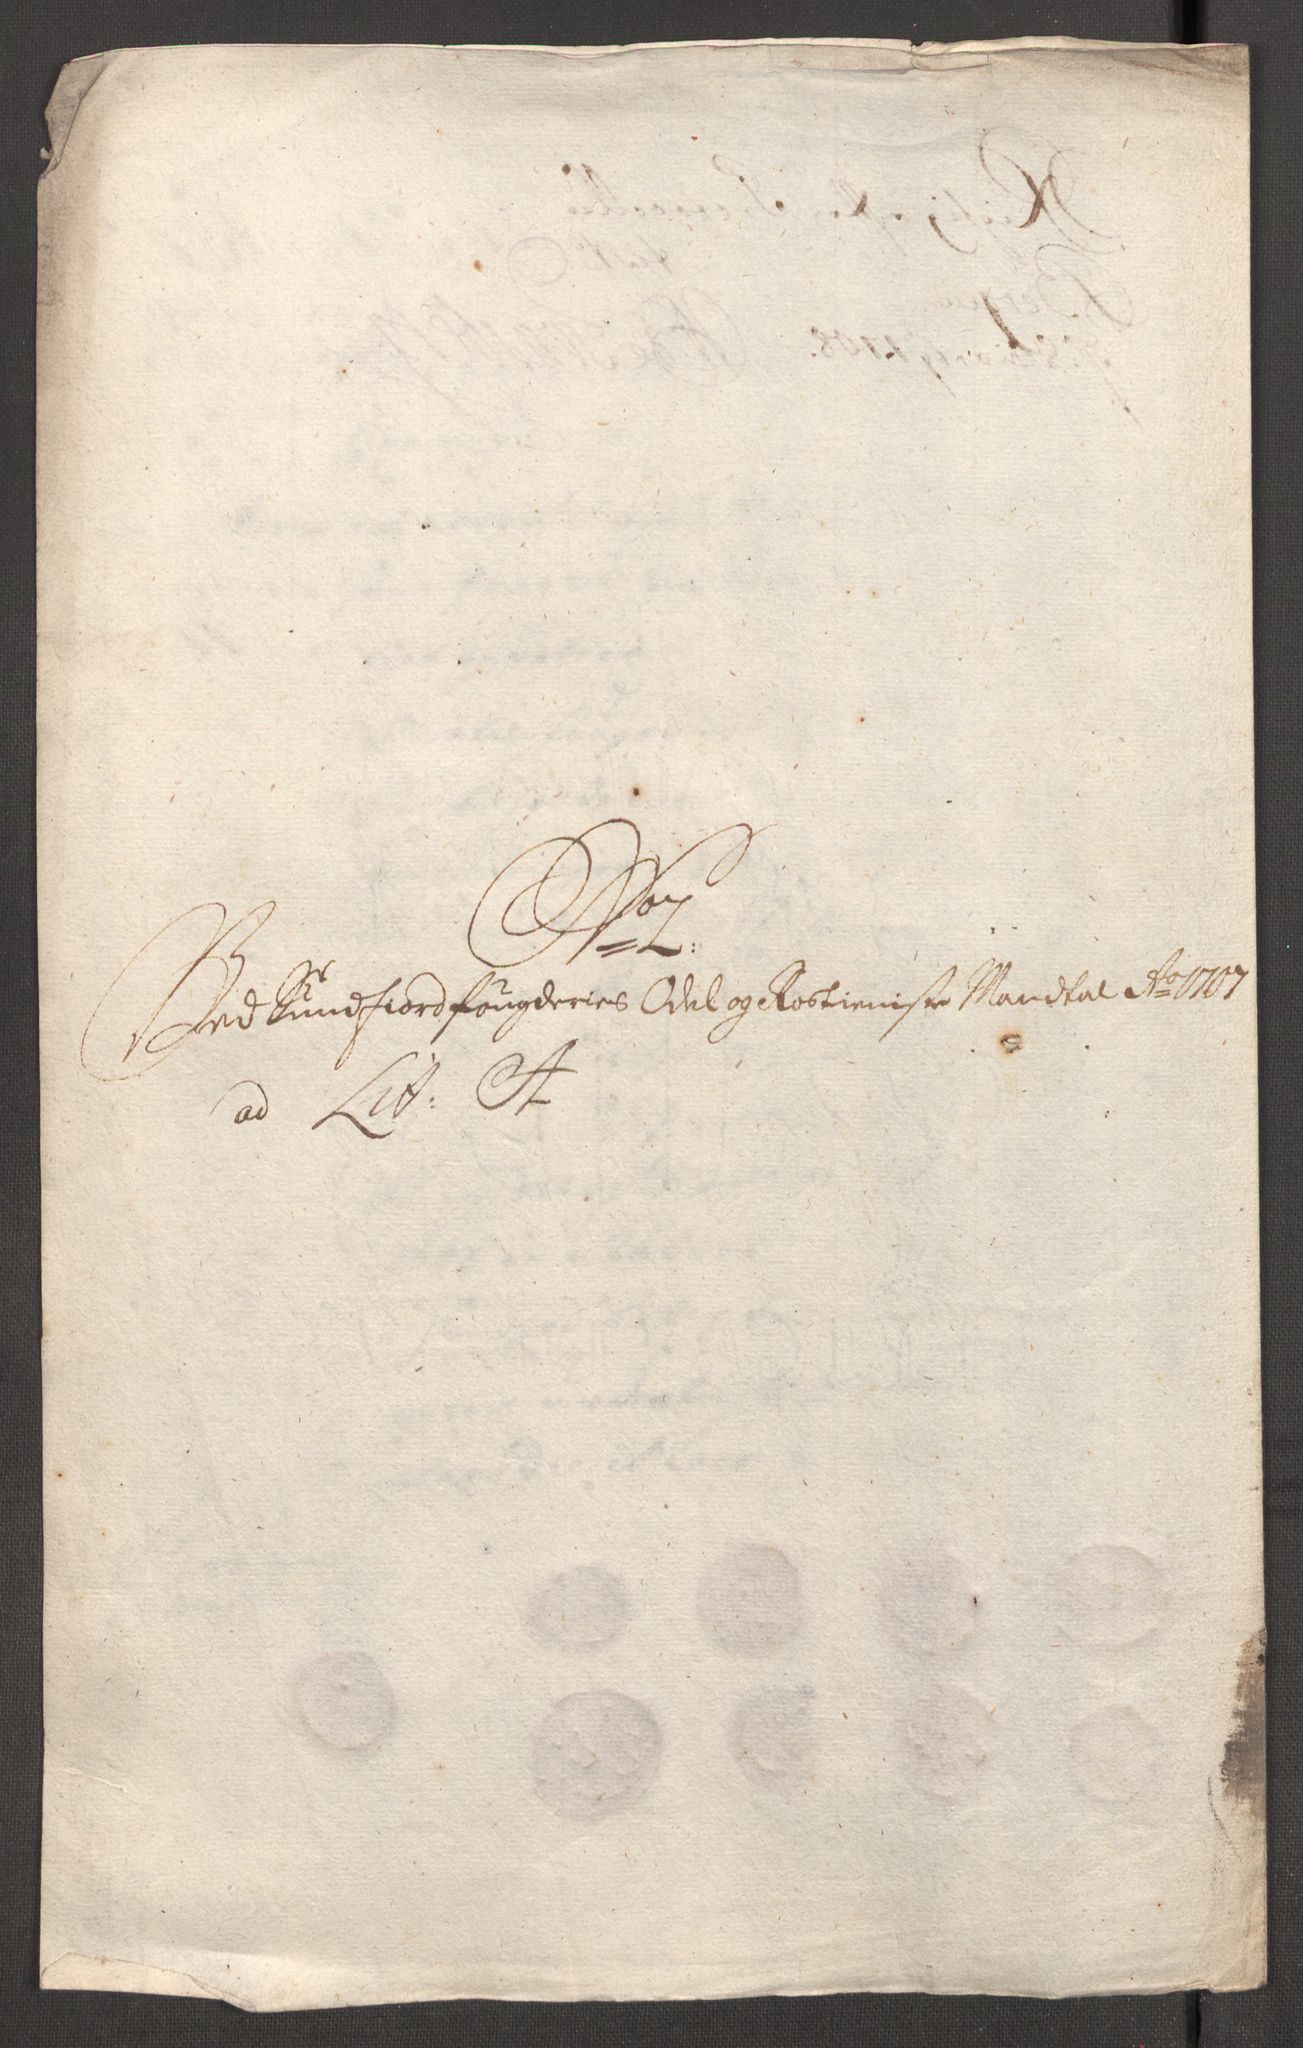 No 7:
Ved Sundfiord fougderies Odel og Rostieniste Mandtal Ao 1707
ad Litt: A